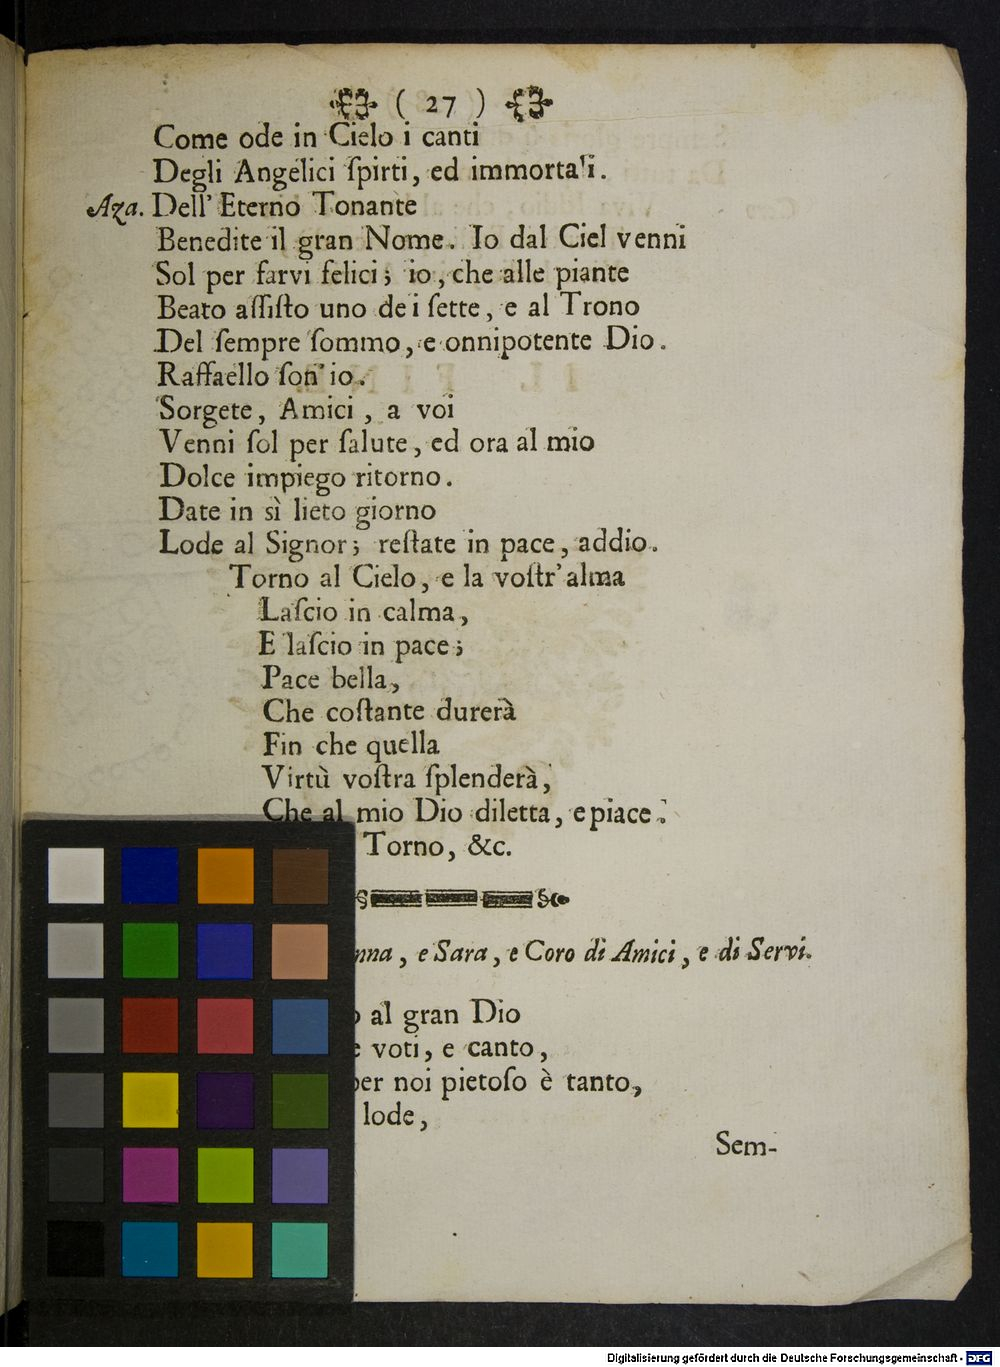 ( 27 )
Come ode in Cielo i canti
Degli Angelici ſpirti, ed immortali.
Aza. Dell' Eterno Tonante
Benedite il gran Nome. Io dal Ciel venni
Sol per farvi felici; io, che alle piante
Beato aſſiſto uno dei ſette, e al Trono
Del ſempre ſommo, e onnipotente Dio.
Raffaello ſon' io.
Sorgete, Amici, a voi
Venni ſol per ſalute, ed ora al mio
Dolce impiego ritorno.
Date in sì lieto giorno
Lode al Signor; reſtate in pace, addio.
Torno al Cielo, e la voſtr' alma
Laſcio in calma,
E laſcio in pace;
Pace bella,
Che coſtante durerà
Fin che quella
Virtù voſtra ſplenderà,
Che al mio Dio diletta, e piace.
Torno, &c.
e Sara, e Coro di Amici, e di Servi.
al gran Dio
voti, e canto,
noi pietoſo è tanto,
lode,
Sem-
Digitalisierung gefördert durch die Deutsche Forschungsgemeinschaft - DFG